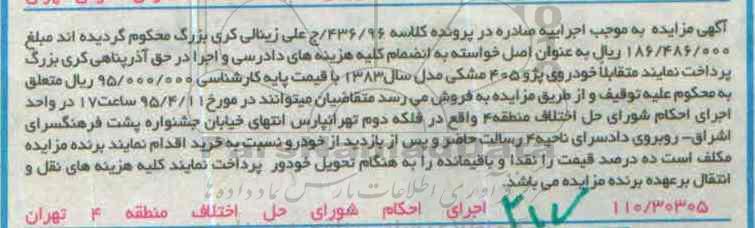 آگهی مزایده به موجب اجراییه صادره در پرونده کلاسه ۴۳۶/۹۶/ج علی زینالی کری بزرگ محکوم گردیده اند مبلغ
۱۸۶/۴۸۶/۰۰۰ ریال به عنوان اصل خواسته به انضمام کلیه هزینه های دادرسی و اجرا در حق آذر پناهی کری بزرگ
پرداخت نمایند متقابلا خودروی پژو ۴۰۵ مشکی مدل سال ۱۳۸۳ با قیمت پایه کارشناسی ۹۵/۰۰۰/۰۰۰ ریال متعلق
به محکوم علیه توقیف و از طریق مزایده به فروش می رسد متقاضیان میتوانند در مورخ ۹۵/۴/۱۱ ساعت ۱۷ در واحد
اجرای احکام شورای حل اختلاف منطقه ۴ واقع در فلکه دوم تهرانپارس انتهای خیابان جشنواره پشت فرهنگسرای
اشراق- روبروی دادسرای ناحیه ۴ رسالت حاضر و پس از بازدید از خودرو نسبت به خرید اقدام نمایند برنده مزایده
مکلف است ده درصد قیمت را نقدا و باقیمانده را به هنگام تحویل خودور پرداخت نمایند کلیه هزینه های نقل و
انتقال بر عهده برنده مزایده می باشد.
۱۱۰/۳۰۳۰۵ اجرای احکام شورای حل اختلاف منطقه ۴ تهران